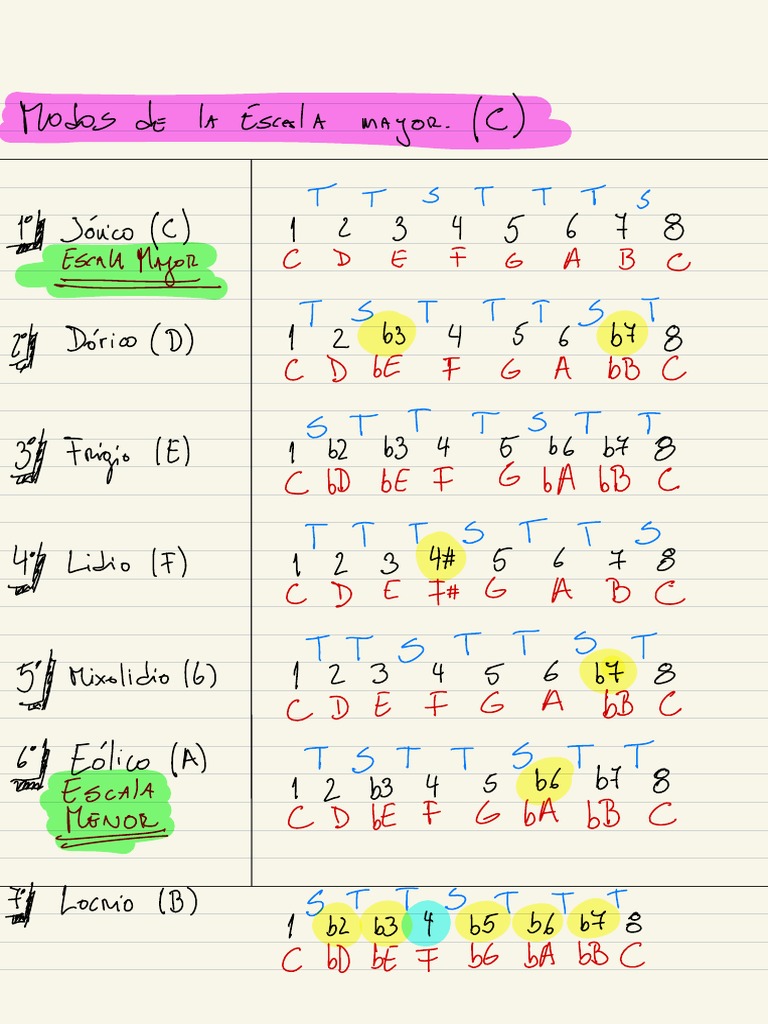 Modos de la Escala mayor. (C)
T T S T T T S
1º Jónico (C) 1 2 3 4 5 6 7 8
Escala Mayor C D E F G A B C
T S T T T S T
2º Dórico (D) 1 2 b3 4 5 6 b7 8
C D bE F G A bB C
S T T T S T T
3º Frigio (E) 1 b2 b3 4 5 b6 b7 8
C bD bE F G bA bB C
T T T S T T S
4º Lidio (F) 1 2 3 4# 5 6 7 8
C D E F# G A B C
T T S T T S T
5º Mixolidio (G) 1 2 3 4 5 6 b7 8
C D E F G A bB C
T S T T S T T
6º Eólico (A) 1 2 b3 4 5 b6 b7 8
Escala C D bE F G bA bB C
Menor
S T T S T T T
7º Locrio (B) 1 b2 b3 4 b5 b6 b7 8
C bD bE F bG bA bB C